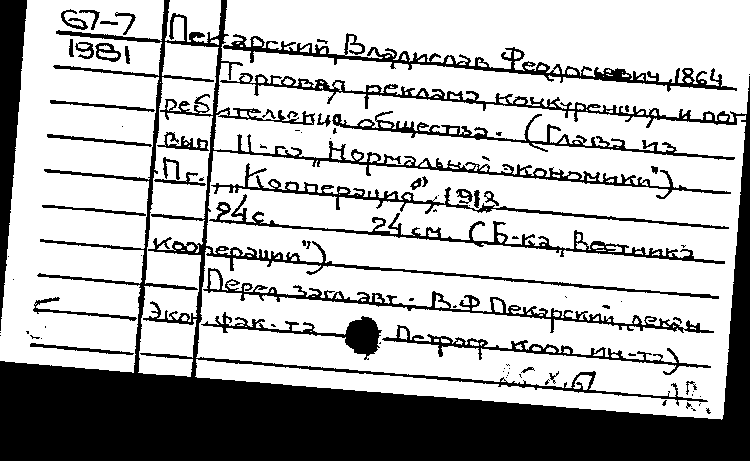 67-7
1981
Пекарский, Владислав Феодосьевич, 1864
Торговая реклама, конкуренция и пот-
ребительския общества. (Глава из
вып II-го „Нормальной экономики").
Пг., „Кооперация", 1918.
24 с. 24 см. (Б-ка „Вестника
кооперации").
Перед загл. авт.: В.Ф Пекарский, декан
Экон. фак-та Петрогр. кооп ин-та)
25.X.67